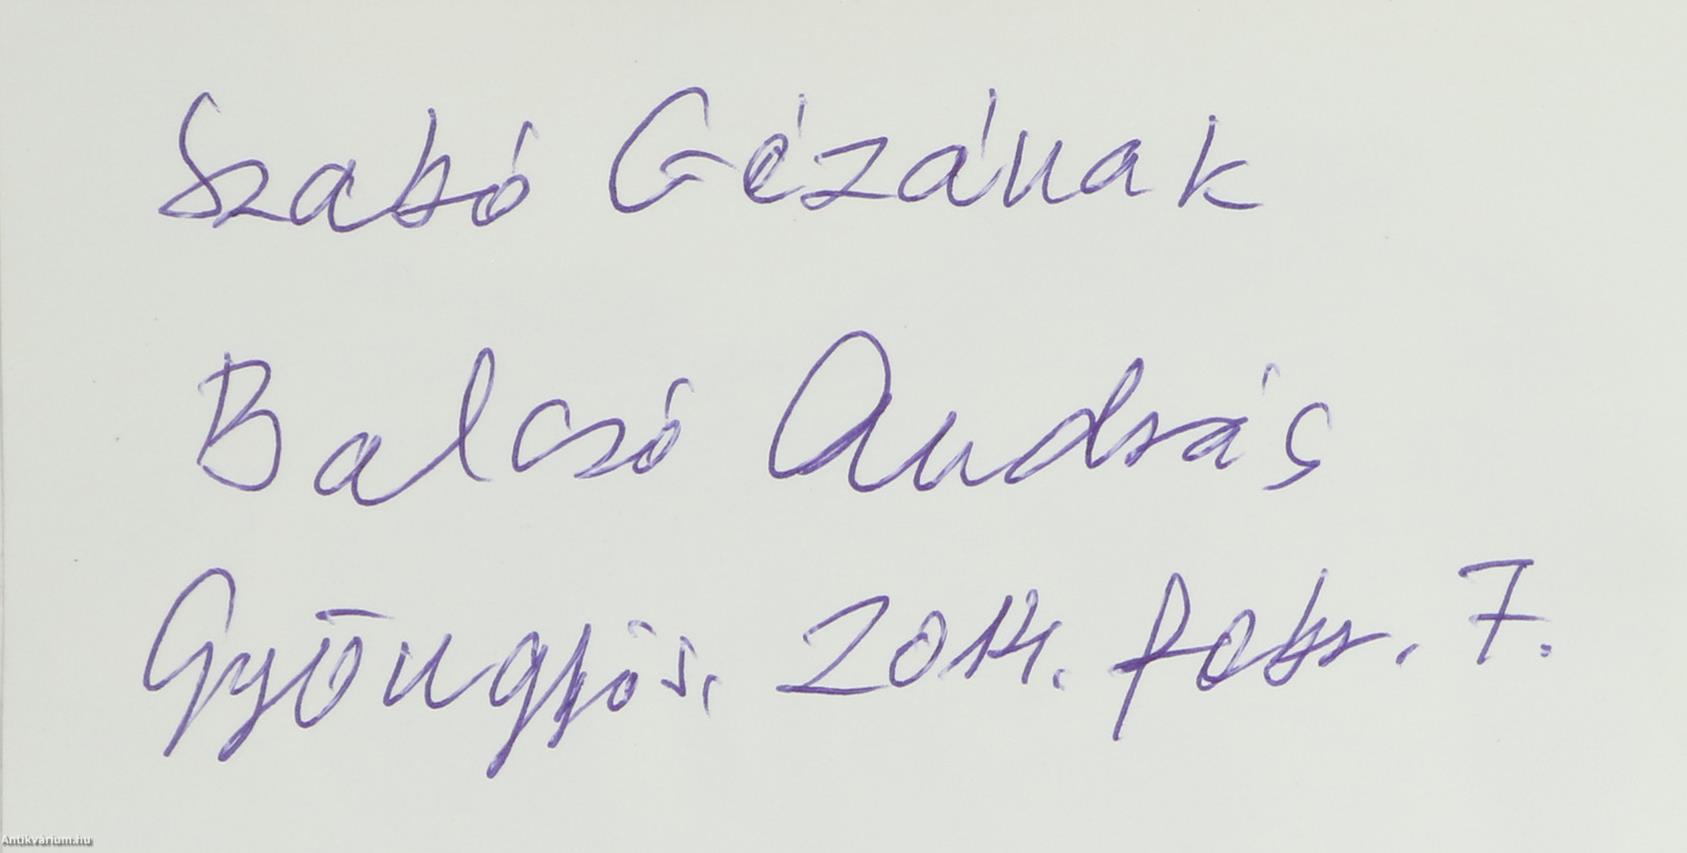 Szabó Gézának
Balcsó András
Gyöngyös, 2014. febr. 7.
Antikvárium.hu